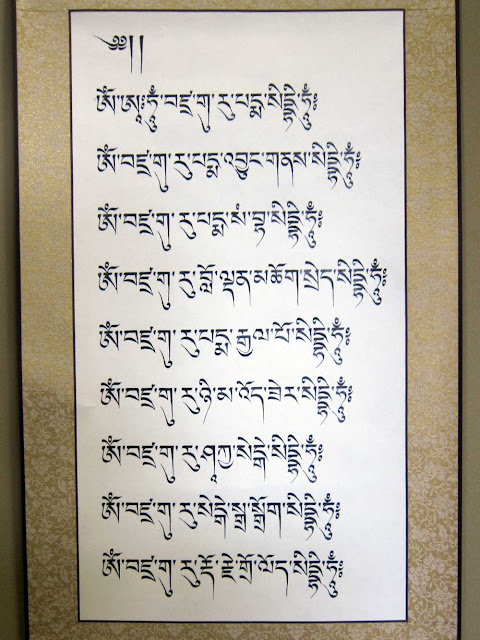 ༄༅།།
ཨོཾ་ཨཱཿཧཱུྃ་བཛྲ་གུ་རུ་པདྨ་སིདྡྷི་ཧཱུྃ༔
ཨོཾ་བཛྲ་གུ་རུ་པདྨ་འབྱུང་གནས་སིདྡྷི་ཧཱུྃ༔
ཨོཾ་བཛྲ་གུ་རུ་པདྨ་སཾ་བྷ་སིདྡྷི་ཧཱུྃ༔
ཨོཾ་བཛྲ་གུ་རུ་བློ་ལྡན་མཆོག་སྲེད་སིདྡྷི་ཧཱུྃ༔
ཨོཾ་བཛྲ་གུ་རུ་པདྨ་རྒྱལ་པོ་སིདྡྷི་ཧཱུྃ༔
ཨོཾ་བཛྲ་གུ་རུ་ཉི་མ་འོད་ཟེར་སིདྡྷི་ཧཱུྃ༔
ཨོཾ་བཛྲ་གུ་རུ་ཤཱཀྱ་སེངྒེ་སིདྡྷི་ཧཱུྃ༔
ཨོཾ་བཛྲ་གུ་རུ་སེངྒེ་སྒྲ་སྒྲོག་སིདྡྷི་ཧཱུྃ༔
ཨོཾ་བཛྲ་གུ་རུ་རྡོ་རྗེ་གྲོ་ལོད་སིདྡྷི་ཧཱུྃ༔